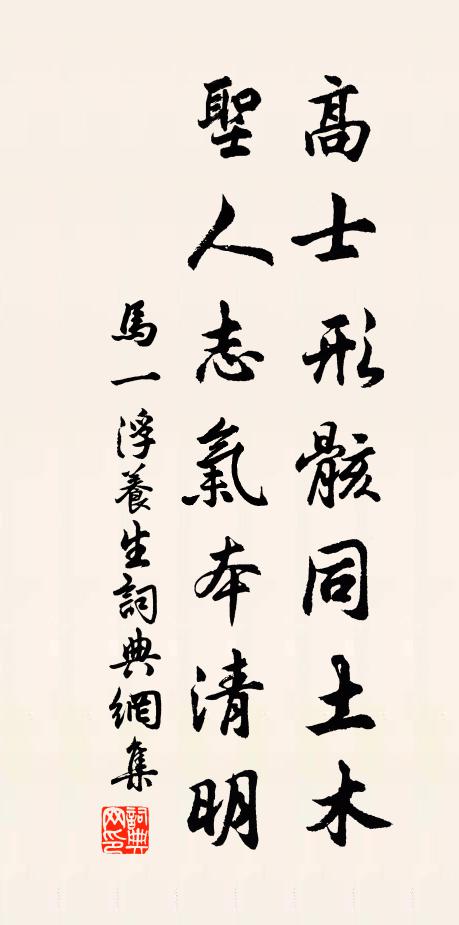 高士形骸同土木
聖人志氣本清明
馬一浮養生詞典網集
詞典網印